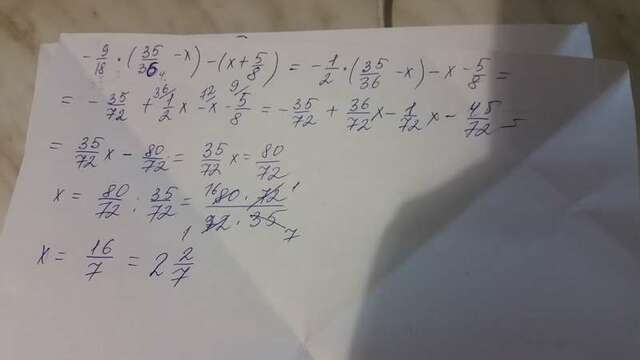 - 9/18 · (35/36 - x) - (x + 5/8) = - 1/2 · (35/36 - x) - x - 5/8 =
= - 35/72 + 1/2 x - x - 5/8 = - 35/72 + 36/72 x - 1/72 x - 45/72 =
= 35/72 x - 80/72 = 35/72 x = 80/72
x = 80/72 : 35/72 = 80 · 72 / 72 · 35
x = 16/7 = 2 2/7